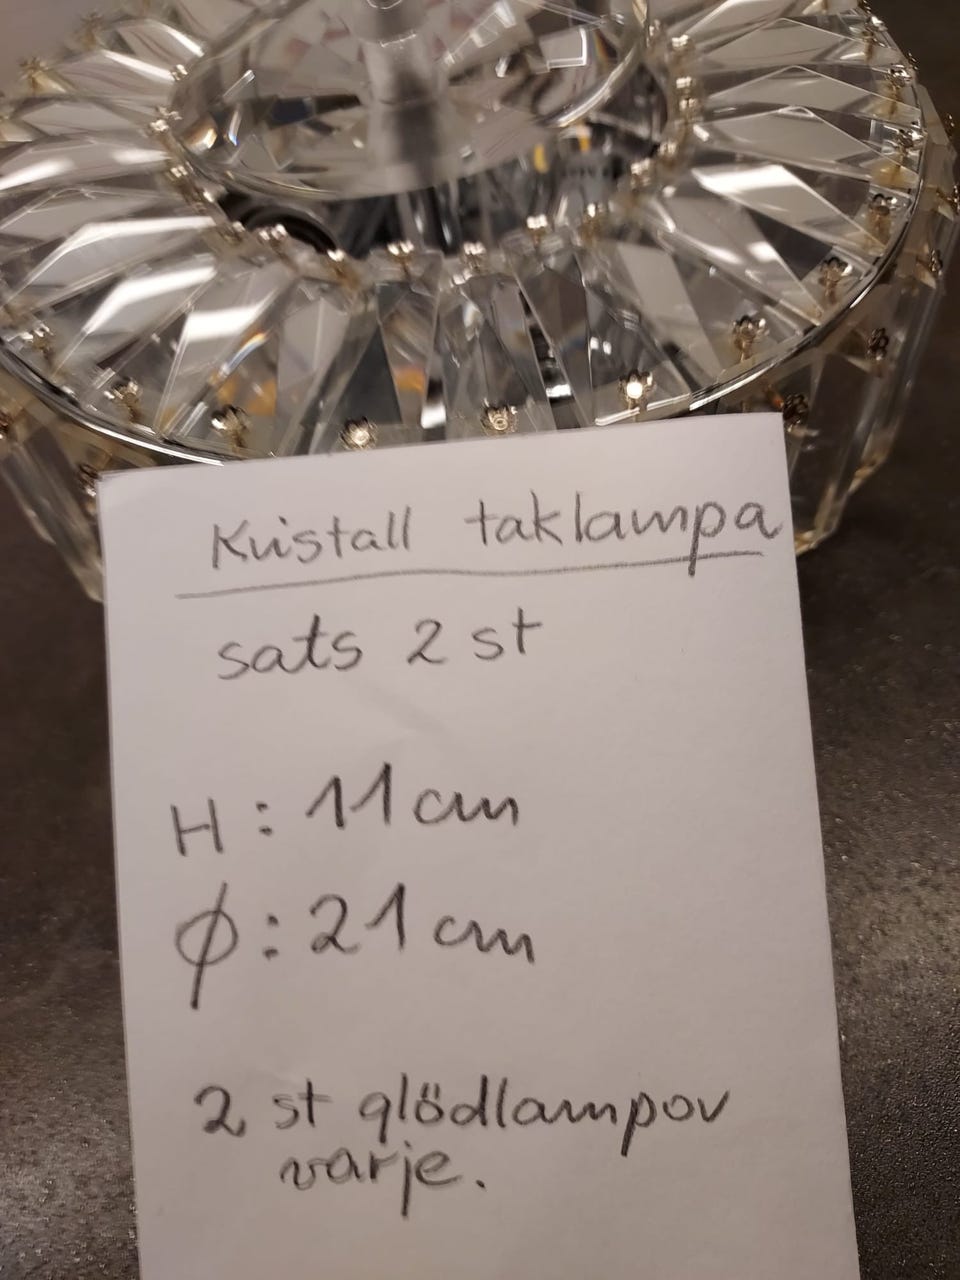 Kristall taklampa
sats 2 st
H: 11 cm
Ø: 21 cm
2 st glödlampor
varje.